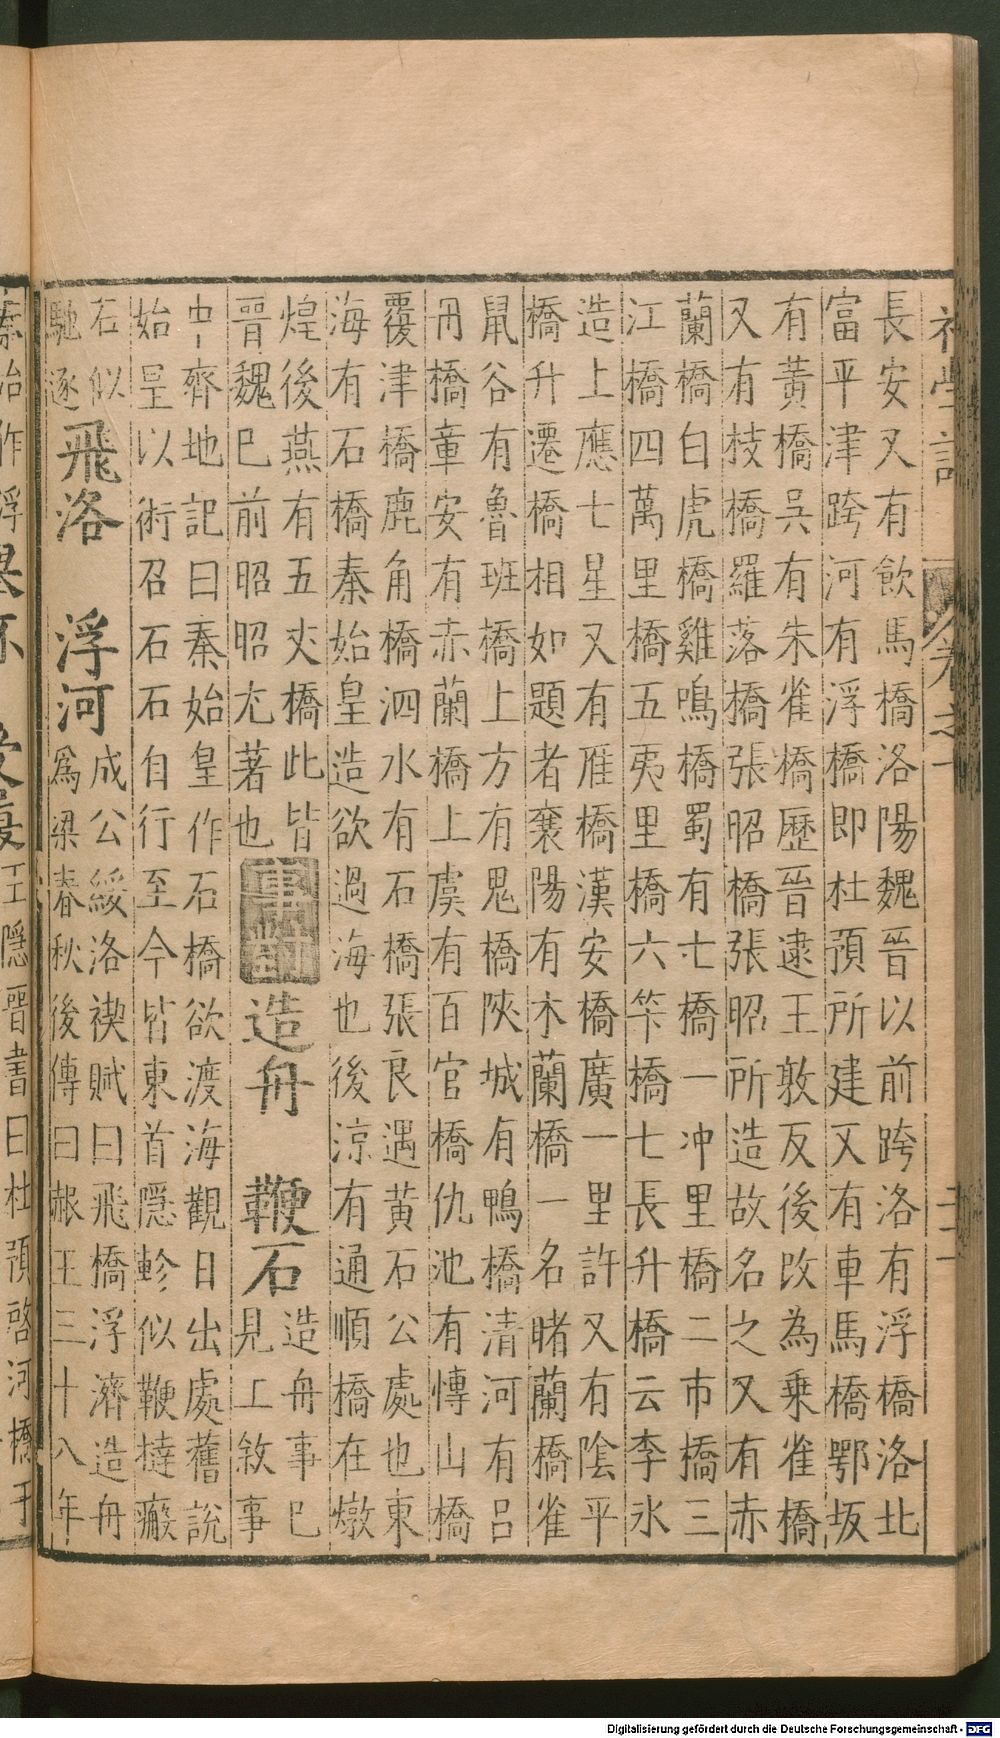 長安又有飲馬橋洛陽魏晉以前跨洛有浮橋洛北
富平津跨河有浮橋即杜預所建又有車馬橋鄂坂
有黃橋吳有朱雀橋歷晉逮王敦反後改為乗雀橋
又有枝橋羅落橋張昭橋張昭所造故名之又有赤
蘭橋白虎橋雞鳴橋蜀有七橋一冲里橋二市橋三
江橋四萬里橋五夷里橋六笮橋七長升橋云李氷
造上應七星又有雁橋漢安橋廣一里許又有陰平
橋升遷橋相如題者襄陽有木蘭橋一名睹蘭橋雀
鼠谷有魯班橋上方有鬼橋陜城有鴨橋清河有吕
冊橋童安有赤蘭橋上虞有百官橋仇池有慱山橋
覆津橋鹿角橋泗水有石橋張良遇黃石公處也東
海有石橋秦始皇造欲過海也後涼有通順橋在燉
煌後燕有五丈橋此皆
晉魏巳前昭昭尢著也
事對
造舟 鞭石
造舟事巳
見上敘事
中齊地記曰秦始皇作石橋欲渡海觀日出處舊説
始皇以術召石石自行至今皆東首隱軫似鞭撻瘢
石似
馳逐
飛洛 浮河
成公綏洛禊賦曰飛橋浮濟造舟
為梁春秋後傳曰赧王三十八年
秦始作浮
王隱晉書曰杜預啓河橋于
Digitalisierung gefördert durch die Deutsche Forschungsgemeinschaft - DFG